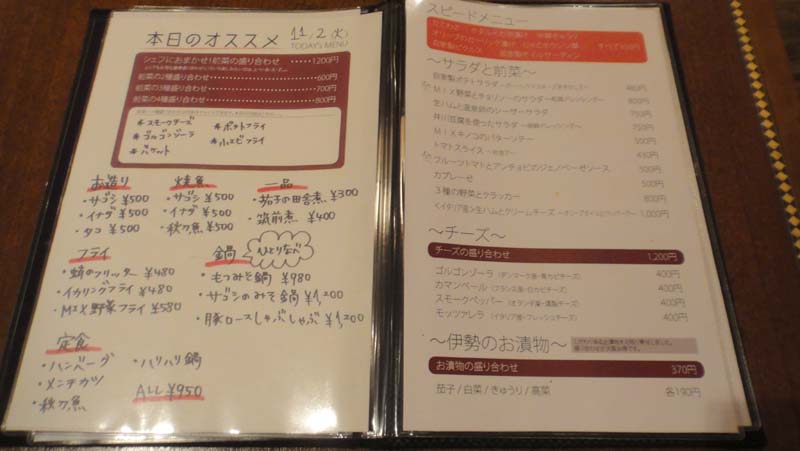 本日のオススメ 11/2(火)
TODAYS MENU
シェフにおまかせ!前菜の盛り合わせ・・・・・・1,200円
前菜の2種盛り合わせ・・・600円
前菜の3種盛り合わせ・・・700円
前菜の4種盛り合わせ・・・800円
*スモークチーズ *ポテトフライ
*ゴルゴンゾーラ *小エビフライ
*バケット
お造り
・サゴシ ¥500
・イナダ ¥500
・タコ ¥500
焼魚
・サゴシ ¥500
・イナダ ¥500
・秋刀魚 ¥500
一品
・茄子の田舎煮 ¥300
・筑前煮 ¥400
フライ
・蛸のフリッター ¥480
・イカリングフライ ¥480
・MIX野菜フライ ¥580
鍋 ひとりなべ
・もつみそ鍋 ¥980
・サゴシのみそ鍋 ¥1,200
・豚ロースしゃぶしゃぶ ¥1,200
定食
・ハンバーグ ・ハリハリ鍋
・メンチカツ
・秋刀魚 ALL ¥950
スピードメニュー
〜サラダと前菜〜
自家製ポテトサラダ 480円
MIX野菜とチョリソーのサラダ 800円
生ハムと温泉卵のシーザーサラダ 750円
井川豆腐を使ったサラダ 750円
MIXキノコのバターソテー 550円
トマトスライス 450円
フルーツトマトとアンチョビのジェノベーゼソース
カプレーゼ
3種の野菜とクラッカー 800円
<イタリア産>生ハムとクリームチーズ 1,000円
〜チーズ〜
チーズの盛り合わせ 1,200円
ゴルゴンゾーラ (デンマーク産・青カビチーズ) 400円
カマンベール (フランス産・白カビチーズ) 400円
スモークペッパー (オランダ産・燻製チーズ) 400円
モッツァレラ (イタリア産・フレッシュチーズ) 400円
〜伊勢のお漬物〜
お漬物の盛り合わせ 370円
茄子/白菜/きゅうり/高菜 各190円